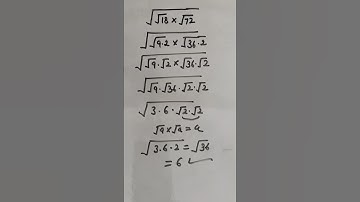 √(√18 × √72)
√(√9·2 × √36·2)
√(√9·√2 × √36·√2)
√(√9·√36·√2·√2)
√(3·6·√2·√2)
√a × √a = a
√(3·6·2) = √36
= 6 ✓